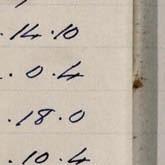 .14.10
.0.4
.18.0
.10.4